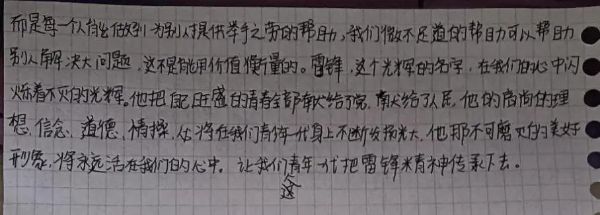 而是每一个人能做到为别人提供举手之劳的帮助,我们微不足道的帮助可以帮助
别人解决大问题,这不是能用价值衡量的。雷锋,这个光辉的名字,在我们的心中闪
烁着不灭的光辉。他把自己旺盛的青春全部献给了党,献给了人民,他的高尚的理
想、信念、道德、情操,必将在我们青年一代身上不断发扬光大,他那不可磨灭的美好
形象,将永远活在我们的心中。让我们这青年一代把雷锋精神传承下去。